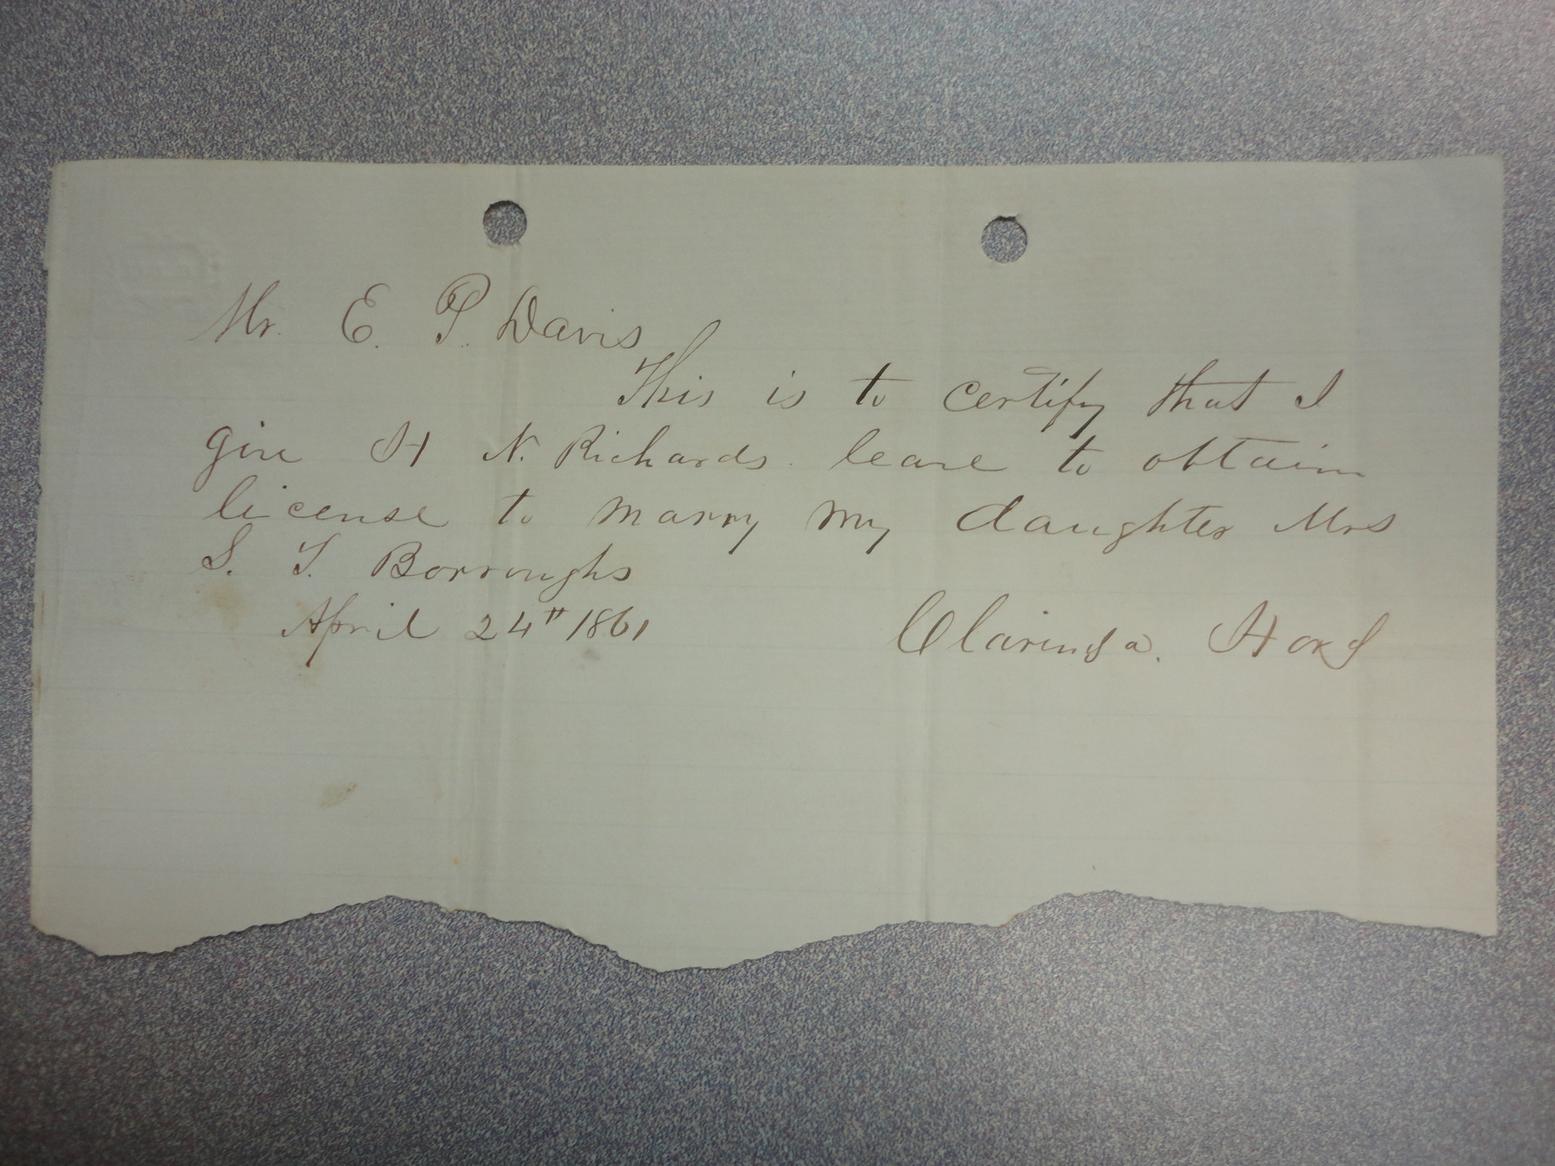 Mr. E. P. Davis
This is to certify that I
give H N. Richards leave to obtain
license to marry my daughter Mrs
S. T. Borroughs
April 24th 1861 Clarinda. Hord